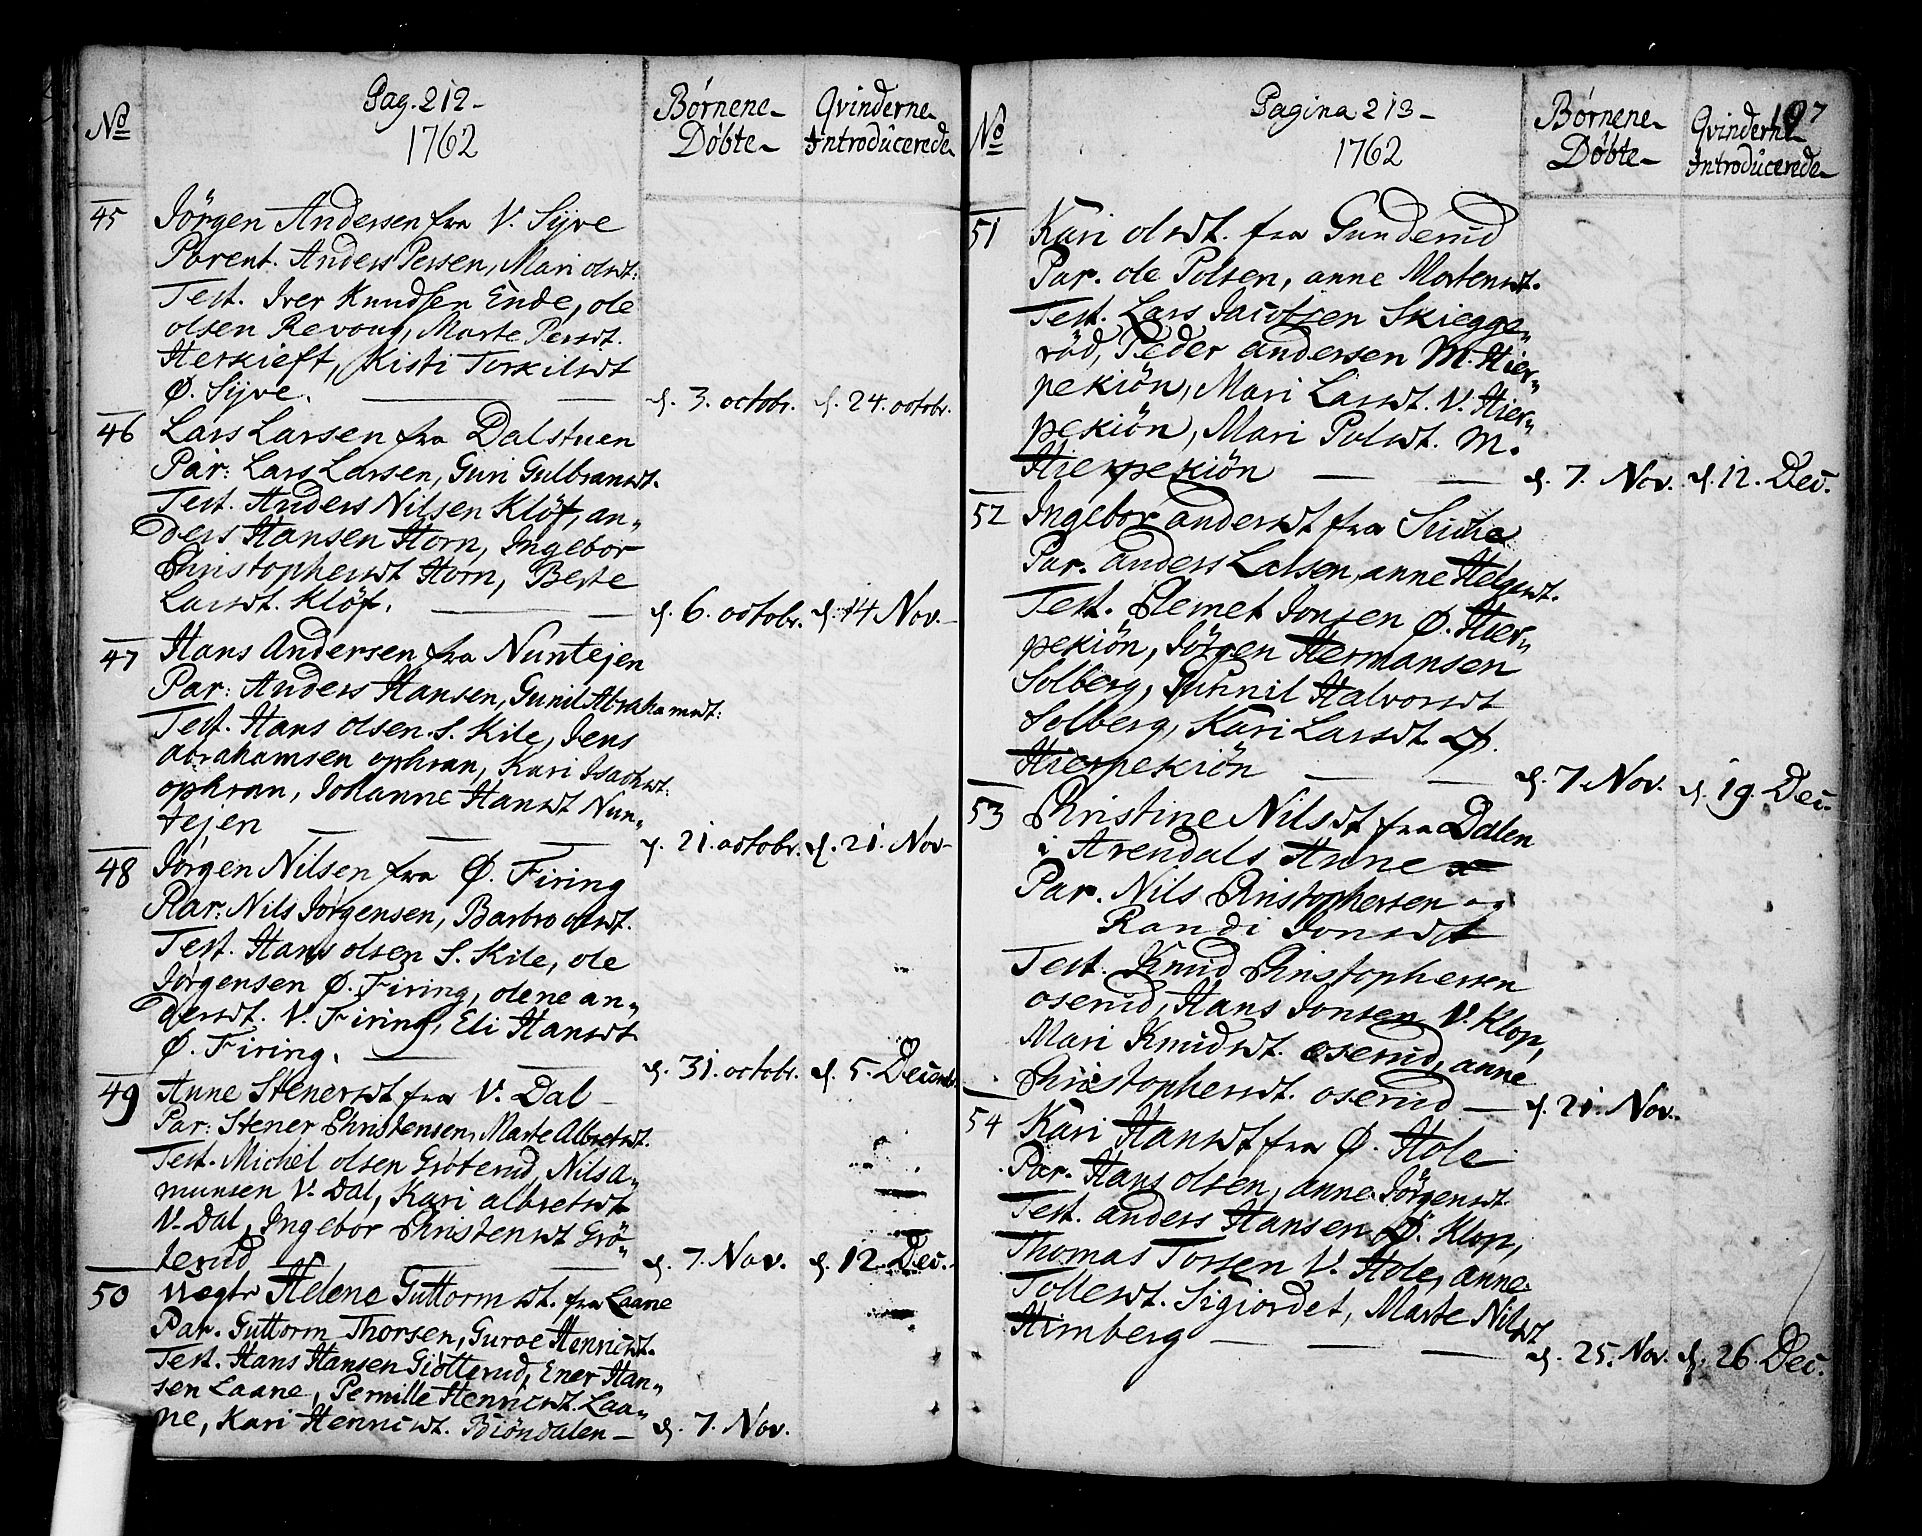 No
Pag. 212-
1762
Børnene
Døbte
Qvinderne
Introducerede
45 Jörgen Andersen fra V. Sÿve
Parent. Anders Persen, Mari olsdt:
Test. Iver Knudsen Ende, ole
olsen Revoug, Marte Persdt.
Herkieft, Kisti Torkilsdt
Ø. Sÿve. d. 3. octobr. d. 24. octobr.
46 Lars Larsen fra Dalstuen
Par: Lars Larsen, Guri Gulbransdt.
Test. Anders Nilsen Klöf, an„
ders Hansen Horn, Ingebor
Christophersdt Horn, Berte
Larsdt. Klöf. d. 6. octobr. d. 14 Nov.
47 Hans Andersen fra Nuntejen
Par: Anders Hansen, Gunil Abrahamsdt:
Test. Hans olsen. S. Kile, Jens
abrahamsen ophran, Kari Isachsdt:
ophran, Johanne Hansdt Nun„
tejen d. 21. octobr. d. 21. Nov
48 Jörgen Nilsen fra Ø. Firing
Par: Nils Jörgensen, Barbro olsdt.
Test. Hans olsen S. Kile, ole
Jörgensen Ø. Firing, olene an„
dersdt. V. Firing, Eli Hansdt
Ø. Firing. d. 31. octobr. d. 5. Decembr.
49 Anne Stenersdt fra V. Dal
Par: Stener Christensen, Marte Albretsdt.
Test. Michel olsen Gröterud, Nils a„
munsen V. Dal, Kari albretsdt
V. Dal, Ingebor Christensdt Grö„
terud d. 7. Nov. d. 12. Dec.
50 uægte Helene Guttormsdt. fra Laane
Par. Guttorm Thorsen, Guroe Henricsdt.
Test. Hans Hansen Giötterud, Ener Han„
sen Laane, Pernille Henricsdt. Laa„
ne, Kari Henricsdt. Biöndalen d. 7. Nov.
No
Pagina 213-
1762
Børnene
Døbte
Qvinderne
Introducerede
197
51 Kari olsdt. fra Gunderud
Par. ole Polsen, anne Mortensdt.
Test. Lars Jacobsen Skiegge„
röd, Peder andersen M. Hier„
pekiön, Mari Larsdt. V. Hier„
pekiön, Mari Polsdt. M.
Hierpekiön d. 7. Nov. d. 12. Dec.
52 Ingebor andersdt fra
Par. anders Larsen, anne Helgesdt.
Test. Clemet Jonsen Ø. Hier„
pekiön, Jörgen Hermansen
Solberg, Gunnil Halvorsdt
Solberg, Kari Larsdt. Ø.
Hierpekiön d. 7 Nov. d. 19. Dec.
53 Christine Nilsdt fra Dalen
i Arendals Anne
Par. Nils Christophersen og
Randi Jonsdt
Test. Knud Christophersen
oserud, Hans Jonsen V. Klop,
Mari Knudsdt. oserud, anne
Christophersdt. oserud d. 21. Nov.
54 Kari Hansdt fra Ø. Hole
Par. Hans olsen, anne Jörgensdt.
Test. anders Hansen Ø. Klop,
Thomas Torsen V. Hole, anne
Tollesdt. Sigiordet, Marte Nilsdt
Himberg d. 25. Nov. d. 26 Dec.